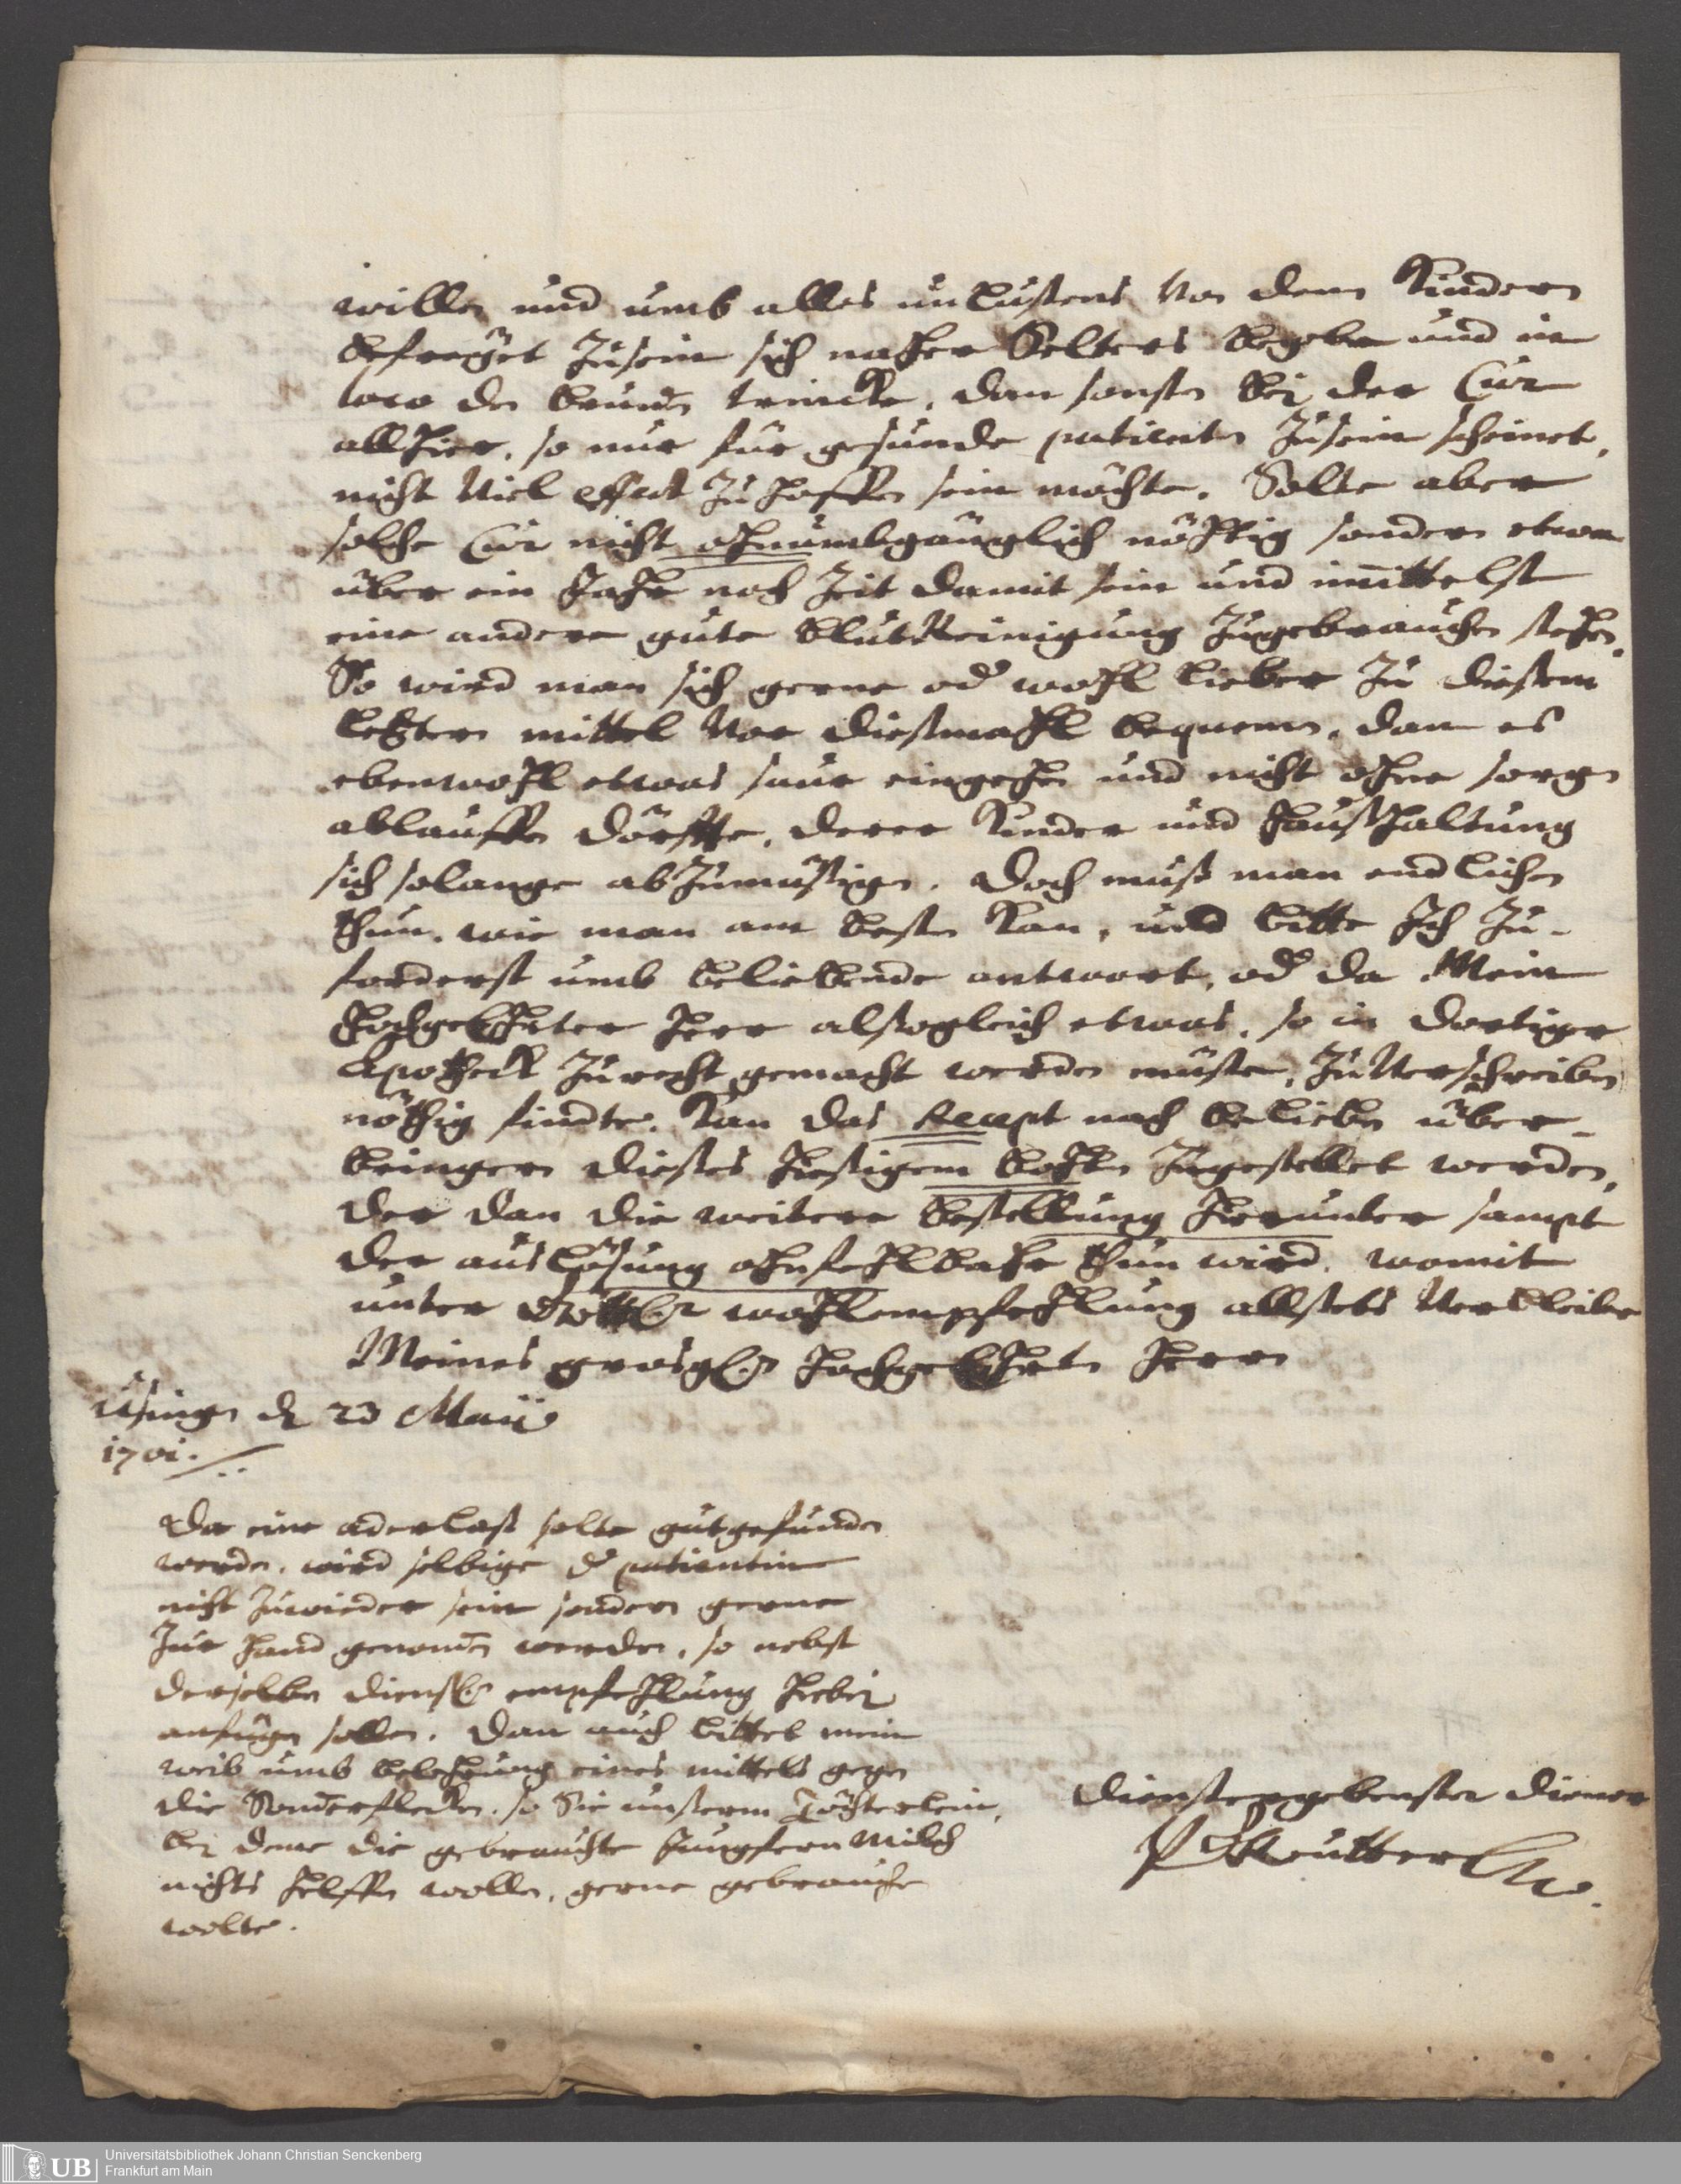 willen und umb alles unlustens von dem Kindern
befreyet zusein sich naher Selters begeben und in
loco den brunnen trincke, dan sonsten bey der Cur
allhier, so nur für gesunde patienten zusein scheinet,
nicht viel effect zu hoffen sein möchte. Solte aber
solche Cur nicht ohnumbgänglich nöhtig sondern etwan
über ein Jahr noch Zeit damit sein und immittelst
eine andere gute blutReinigung zugebrauchen stehen,
So wird man sich gerne od wohl lieber zu diesem
letztern mittel vor dießmahl bequemen, dan es
ebenwohl etwas saur eingehen und nicht ohne sorgen
ablauffen dörffte, derer Kinder und haußhaltung
sich solange abzumüßigen. Doch muß man endlichen
thun, wie man am besten kan, und bitte Ich zu-
forderst umb beliebende antwort, od da Mein
Hochgeehrter Herr alsogleich etwas, so in dortiger
Apotheck zurecht gemacht werden müste, zuverschreiben
nöthig findte, kan das Recept nach belieben über-
bringern dießes hießigem bohten zugestellet werden,
der dan die weitere bestellung hierunter sampt
der auslösung ohnfehlbahr thun wird, womit
unter Göttl. wohlempfehlung allstets verbleibe
Meines grosgl. Hochgeehrten Herrn
Usingen d 23 Maii
1701.
Da eine aderlaß solte gutgefunden
werden, wird selbige d patientin
nicht zuwieder sein sondern gerne
zur hand genommen werden, so nebst
derselben dienstl. empfehlung hiebey
anfügen sollen. Dan auch bittet mein
weib umb belehrung eines mittels gegen
die Sonderflecken, so Sie unßerm Töchterlein,
bey deme die gebrauchte JungfernMilch
nichts helffen wollen, gerne gebrauchen
wolte.
Dienstergebenster Diener
Reutter
Universitätsbibliothek Johann Christian Senckenberg
Frankfurt am Main
UB